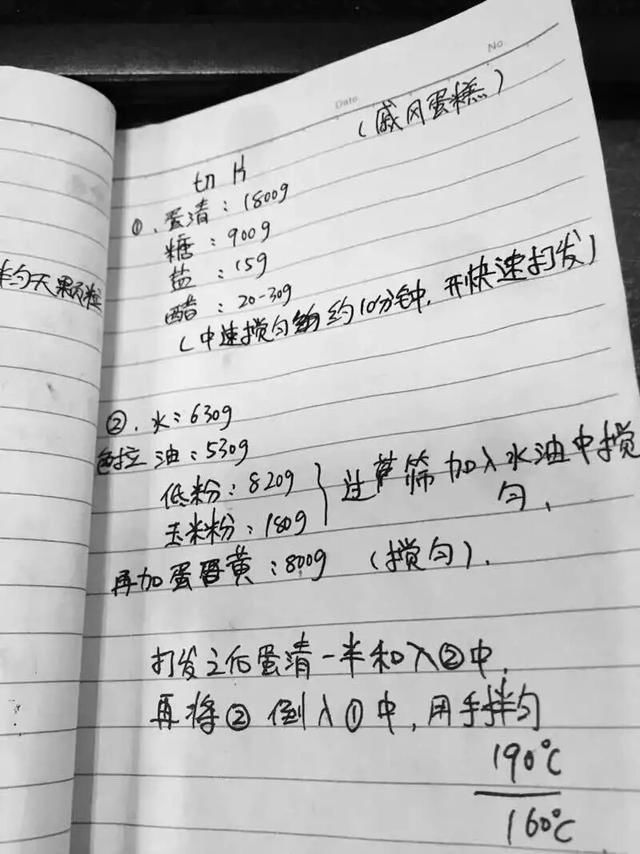 No.
Date
(戚风蛋糕)
切片
①.蛋清:1800g
糖:900g
盐:15g
醋:20-30g
(中速搅匀约10分钟,开快速打发)
②.水:630g
色拉油:530g
低粉:820g
玉米粉:180g
过筛加入水油中搅
匀,
再加蛋黄:800g (搅匀).
打发之后蛋清一半和入②中,
再将②倒入①中,用手拌匀
190℃
160℃
颗粒